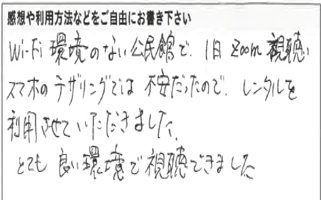 感想や利用方法などをご自由にお書き下さい
Wi-Fi環境のない公民館で、1日Zoom視聴。
スマホのテザリングでは不安だったので、レンタルを
利用させていただきました。
とても良い環境で視聴できました